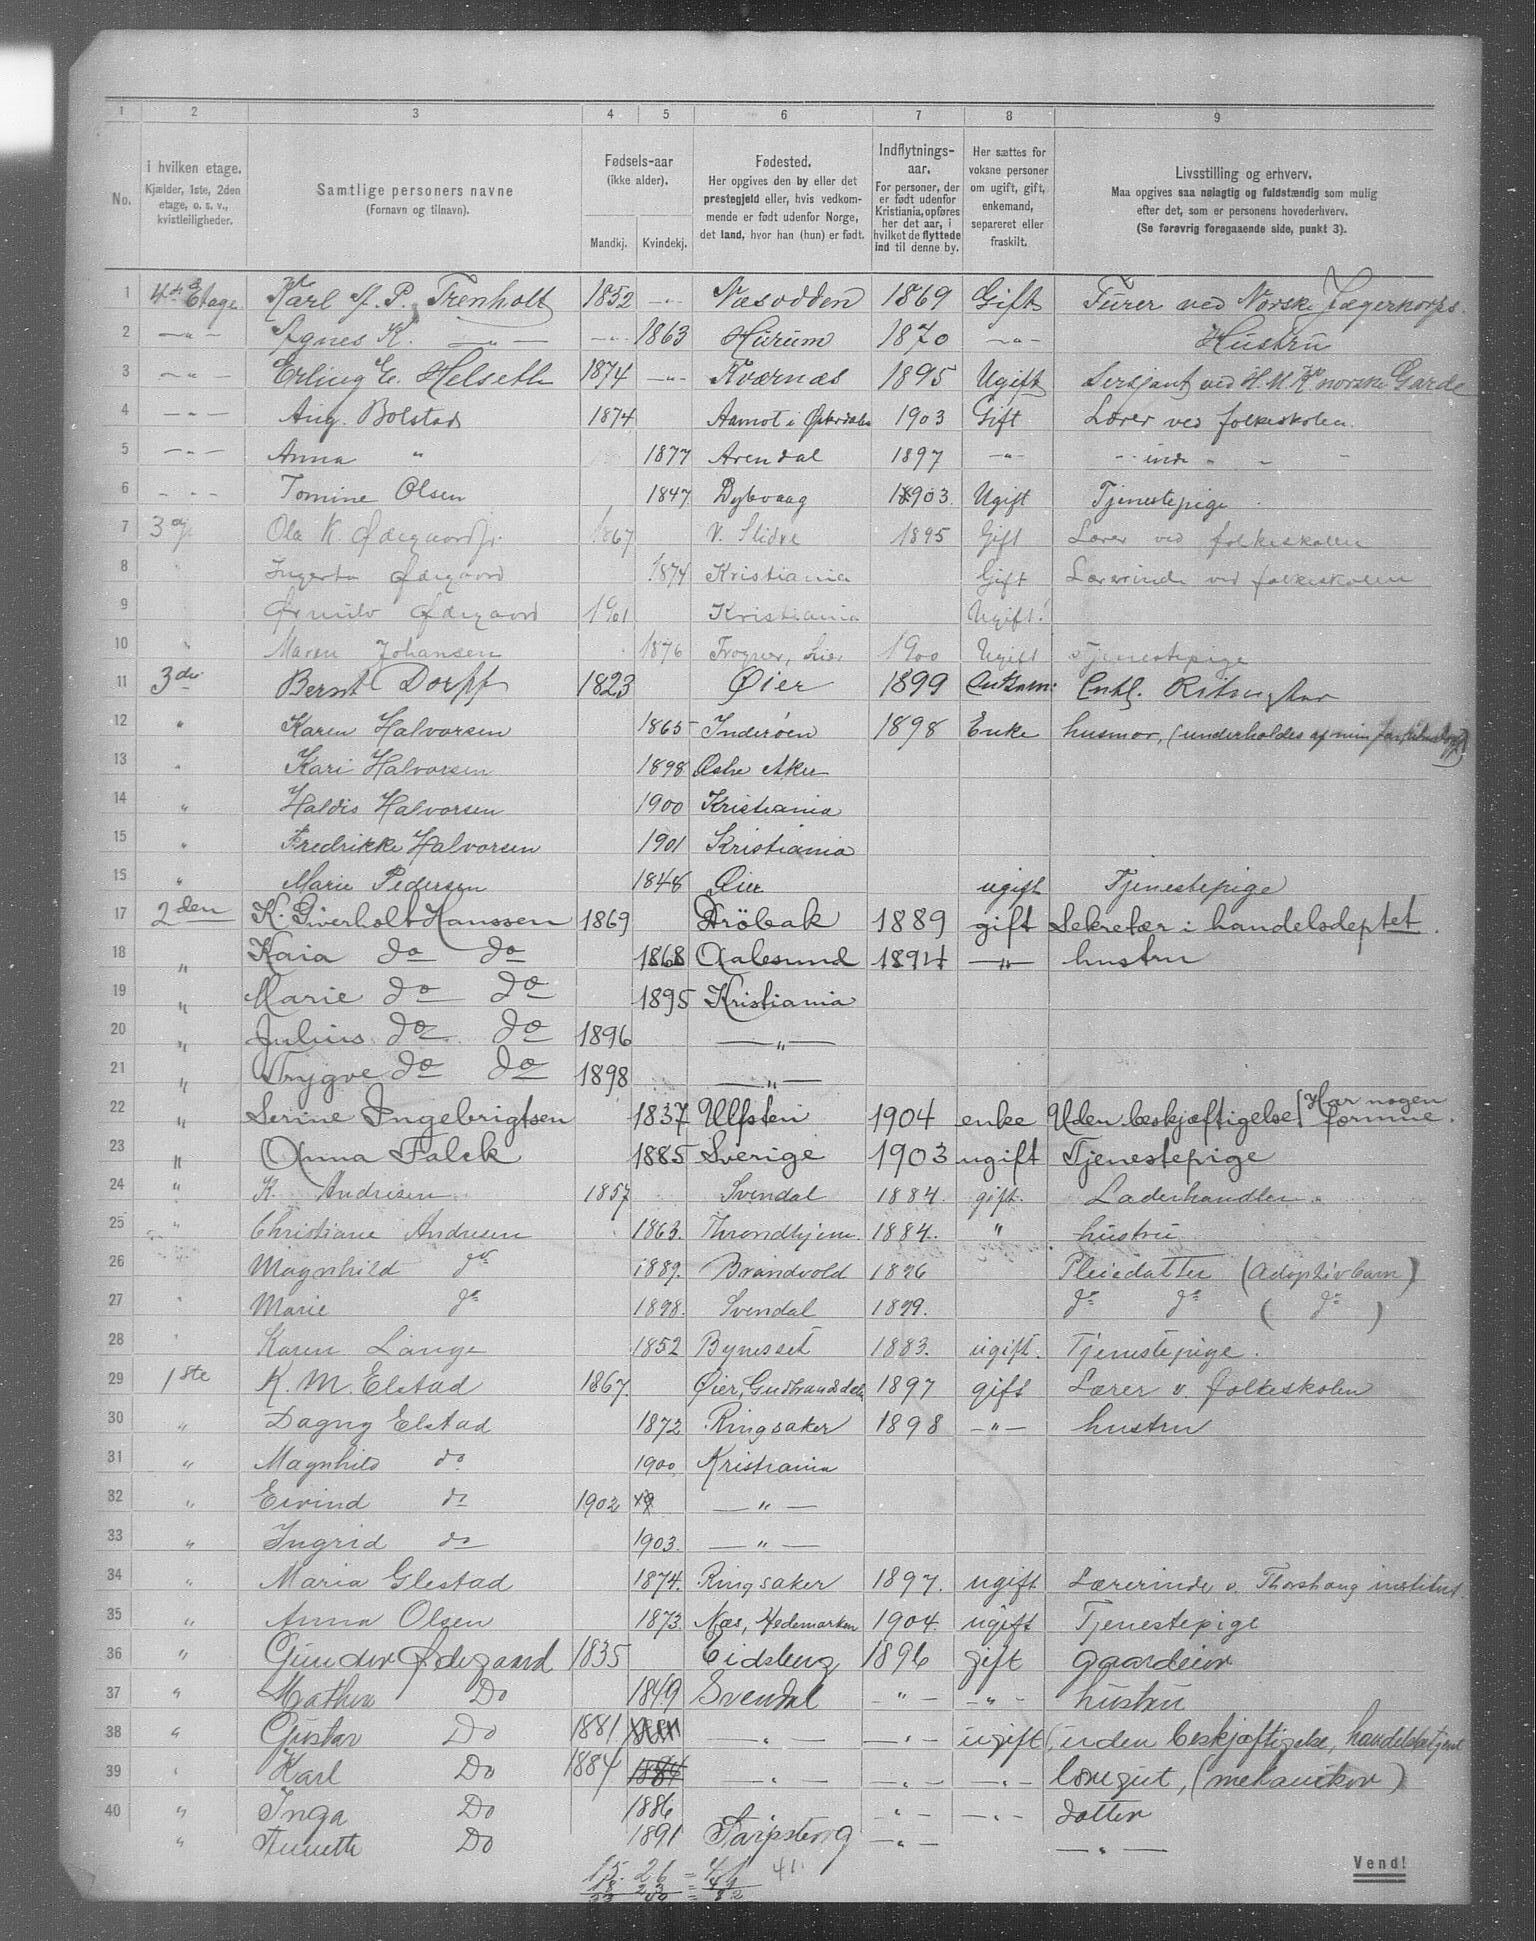 1 2 3 4 5 6 7 8 9
No. I hvilken etage. Kjælder, 1ste, 2den etage, o. s. v., kvistleiligheder. Samtlige personers navne (Fornavn og tilnavn). Fødsels-aar (ikke alder). Mandkj. Kvindekj. Fødested. Her opgives den by eller det prestegjeld eller, hvis vedkommende er født udenfor Norge, det land, hvor han (hun) er født. Indflytnings-aar. For personer, der er født udenfor Kristiania, opføres her det aar, i hvilket de flyttede ind til denne by. Her sættes for voksne personer om ugift, gift, enkemand, separeret eller fraskilt. Livsstilling og erhverv. Maa opgives saa nøiagtig og fuldstændig som mulig efter det, som er personens hovederhverv. (Se forøvrig foregaaende side, punkt 3).
1 4de Etage Karl A. P. Trenholt 1852 -"- Næsodden 1869 Gift Furer ved Norske Jægerkorps.
2 -"- Agnes K. -"- -"- 1863 Hurum 1870 -"- Hustru
3 -"- Erling E. Helseth 1874 -"- Kværnæs 1895 Ugift Sersjant ved H. M. K. norske Garde
4 -"- Aug. Bolstad 1874 Aamot i Østerdalen 1903 Gift Lærer ved folkeskolen.
5 -"- Anna " 1877 Arendal 1897 -"- - inde " - -
6 -"- Tomine Olsen 1847 Dybvaag 1903. Ugift Tjenestepige
7 3 Ola K. Ødegaard jr. 1867 V. Slidre 1895 Gift Lærer ved folkeskolen
8 " Ingerta Ødegaard 1874 Kristiania Gift Lærerinde ved folkeskolen
9 Ødegaard 1901 Kristiania Ugift!
10 " Maren Johansen 1876 Frogner, Lier 1900 Ugift Tjenestepige
11 3die Bernt Dorff 1823 Øier 1899 Enkem:
12 " Karen Halvorsen 1865 Inderöen 1898 Enke husmor, (underholdes af min
13 " Kari Halvorsen 1898 Østre Aker
14 " Haldis Halvorsen 1900 Kristiania
15 " Fredrikke Halvorsen 1901 Kristiania
15 " Marie Pedersen 1848 Øier ugift Tjenestepige
17 2den K. Giverholt Hanssen 1869 Drøbak 1889 gift Sekretær i handelsdeptet.
18 " Kaia do do 1868 Aalesund 1894 -"- hustru
19 " Marie do do 1895 Kristiania
20 " Julius do do 1896 -"-
21 " Trygve do do 1898 -"-
22 " Serine Ingebrigtsen 1837 Ulfsten 1904 enke Uden beskjæftigelse. Har nogen formue.
23 " Anna Falck 1885 Sverige 1903 ugift Tjenestepige
24 " K. Andresen 1857 Svendal 1884. gift. Læderhandler.
25 " Christiane Andresen 1863. Throndhjem. 1884. " hustru
26 Magnhild do 1889. Brandvold 1896 Pleiedatter (Adoptivbarn)
27 " Marie do 1898. Svendal 1899. do do ( do )
28 " Karen Lange 1852 Bynesset 1883. ugift. Tjenestepige.
29 1ste K. M. Elstad 1867. Øier, Gudbrandsdalen 1897 gift Lærer v. folkeskolen
30 " Dagny Elstad 1872 Ringsaker 1898 -"- hustru
31 " Magnhild do 1900. Kristiania
32 " Eivind do 1902 -"-
33 " Ingrid do 1903. -"-
34 " Maria Glestad 1874. Ringsaker 1897. ugift Lærerinde v. Thorshaug institut.
35 " Anna Olsen 1873. Næs, Hedemarken 1904. ugift Tjenestepige
36 " Gunder Ødegaard 1835 Eidsberg 1896 gift gaardeier
37 " Mathea Do 1849 Svendal -"- -"- hustru
38 " Gustav Do 1881. -"- -"- ugift (uden beskjæftigelse, handelsbetjent
39 " Karl Do 1884 1884 -"- -"- -"- løregut, (mekanikor)
40 " Inga Do 1886 -"- -"- datter
" Annette Do 1891 Sarpsborg -"- -"-
15. 26 = 41 41.
18 23 = 41
82
Vend!